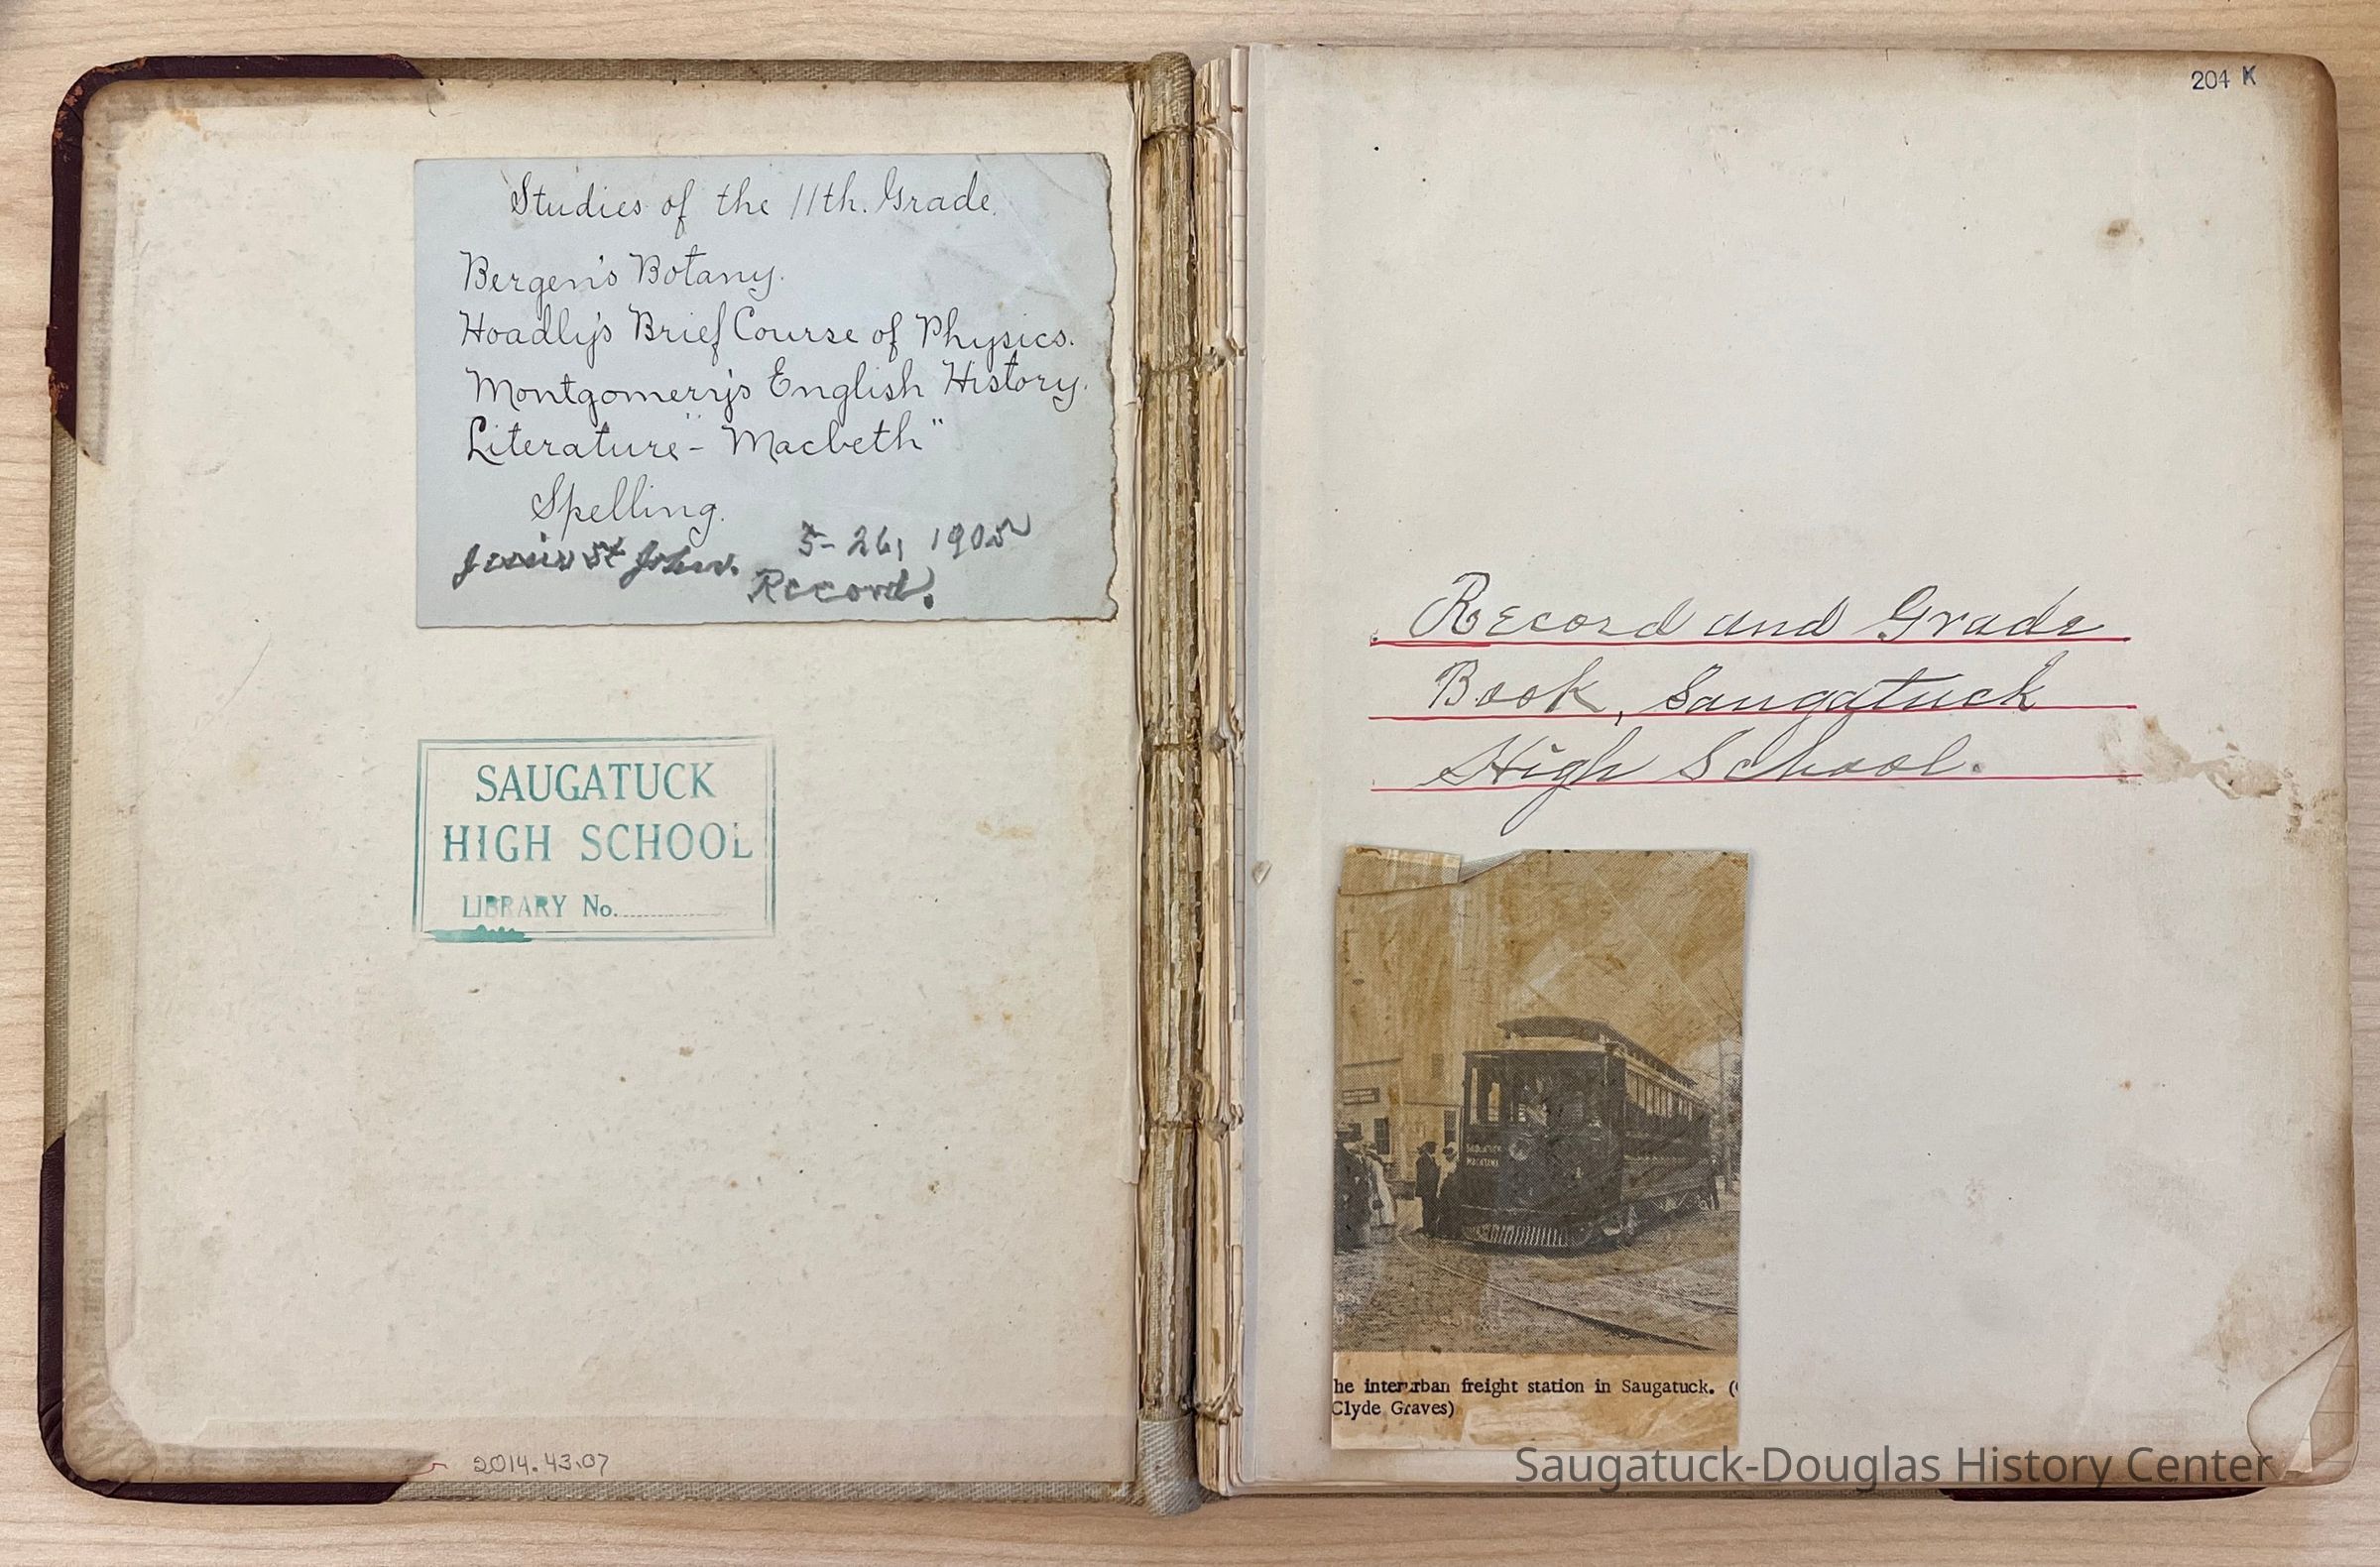 Studies of the 11th. Grade.
Bergen's Botany.
Hoadly's Brief Course of Physics.
Montgomery's English History.
Literature - "Macbeth"
Spelling.
Jessie St John. 5-26, 1905
Record.
SAUGATUCK
HIGH SCHOOL
LIBRARY No.
2014.43.07
204 K
Record and Grade
Book, Saugatuck
High School.
SAUGATUCK
he interurban freight station in Saugatuck. (
Clyde Graves)
Saugatuck-Douglas History Center